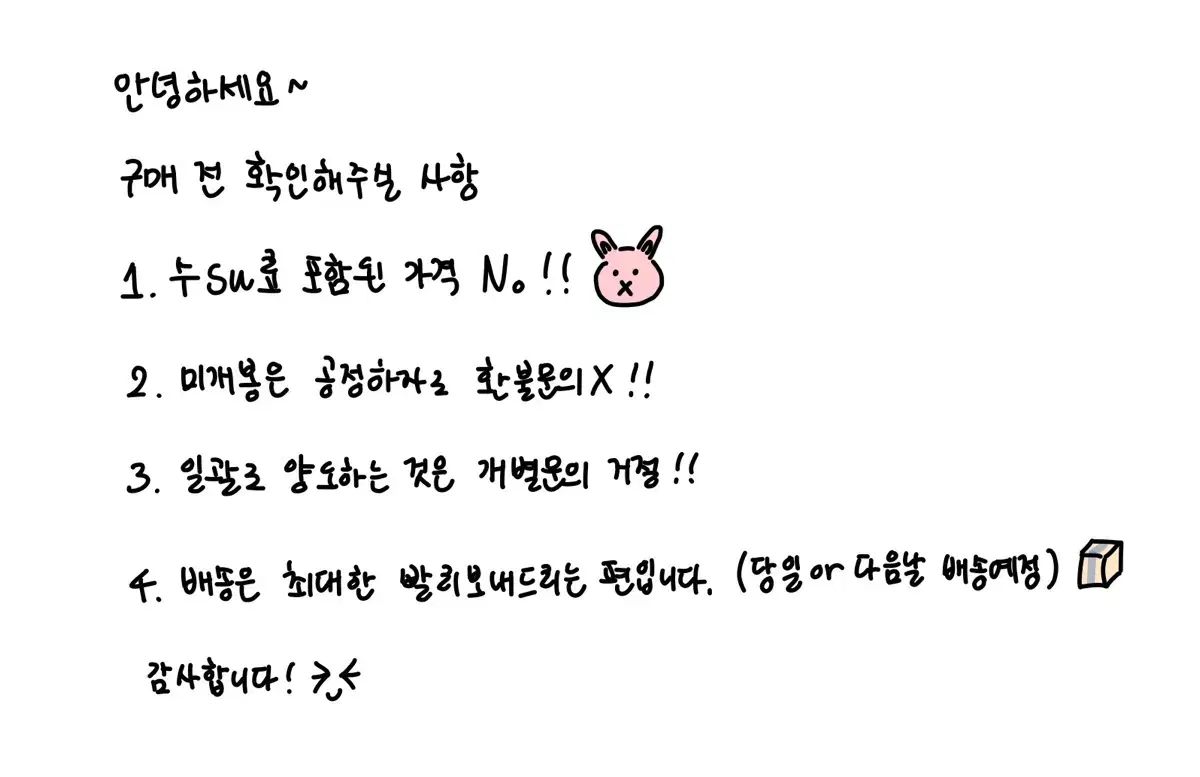 안녕하세요~
구매 전 확인해주실 사항
1. 수su료 포함된 가격 No!!
2. 미개봉은 공정하자로 환불문의X!!
3. 일괄로 양도하는 것은 개별문의 거절!!
4. 배송은 최대한 빨리보내드리는 편입니다. (당일 or 다음날 배송예정)
감사합니다!